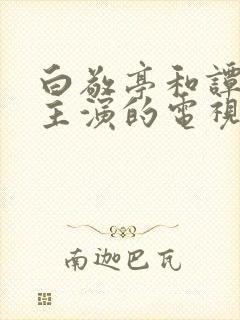 白敬亭和譚
主演的電視
南迦巴瓦